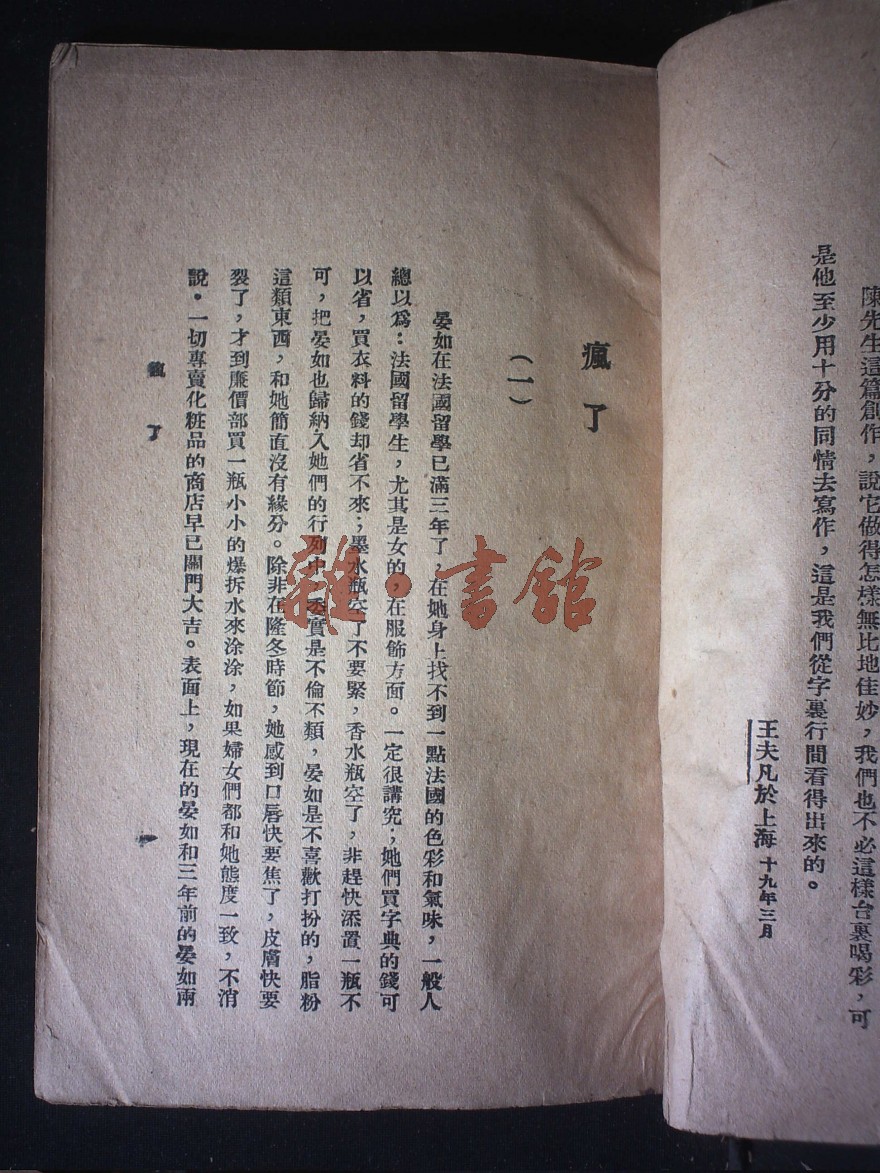 陳先生這篇創作，說它做得怎樣無比地佳妙，我們也不必這樣台裏喝彩，可
是他至少用十分的同情去寫作，這是我們從字裏行間看得出來的。
王夫凡於上海 十九年三月
瘋了
（一）
晏如在法國留學已滿三年了，在她身上找不到一點法國的色彩和氣味，一般人
總以爲：法國留學生，尤其是女的，在服飾方面。一定很講究；她們買字典的錢可
以省，買衣料的錢却省不來；墨水瓶空了不要緊，香水瓶空了，非趕快添置一瓶不
可，把晏如也歸納入她們的行列中，委實是不倫不類，晏如是不喜歡打扮的，脂粉
這類東西，和她簡直沒有緣分。除非在隆冬時節，她感到口唇快要焦了，皮膚快要
裂了，才到廉價部買一瓶小小的爆拆水來涂涂，如果婦女們都和她態度一致，不消
說。一切專賣化粧品的商店早已關門大吉。表面上，現在的晏如和三年前的晏如兩
瘋了
一
雜·書館